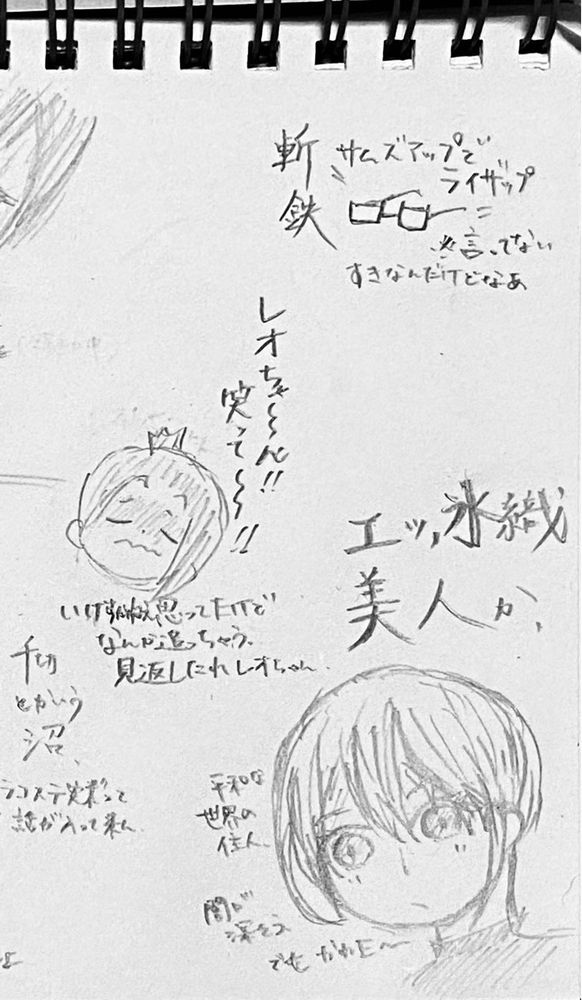 斬鉄
サムズアップで
ライザップ
※言ってない
すきなんだけどなあ
レオちゃ〜〜ん!!
笑って〜〜!!
エッ,氷織
美人か、
思ってたけど
なんか追っちゃう、
見返したれレオちゃん.
千切
とかいう
沼、
ラコステ
話が入って来ん
平和な
世界の
住人
闇が
深そう
でもかわE〜